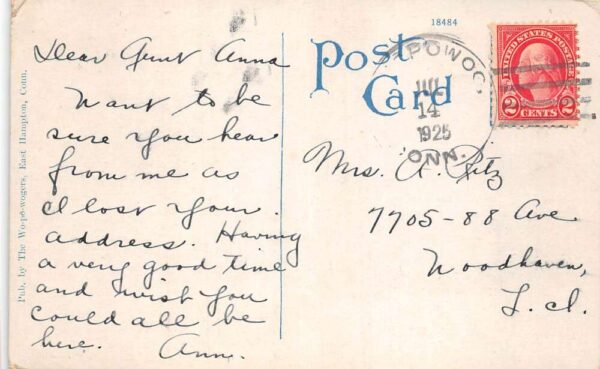 18484
Post
Card
Dear Aunt Anna
Want to be
sure you hear
from me as
I lost your
address. Having
a very good time
and wish you
could all be
here. Ann.
Pub. by The Wo-pó-wogers, East Hampton, Conn.
JUL
14
1925
CONN.
UNITED STATES POSTAGE
2 CENTS 2
Mrs. A. Pitz
7705-88 Ave
Woodhaven,
L.I.